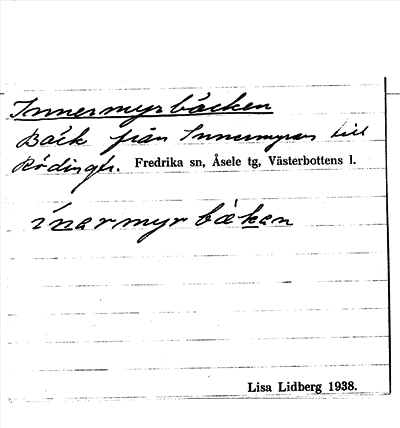 Innermyrbäcken
Bäck från Innermyran till
Rödingtr. Fredrika sn, Åsele tg, Västerbottens l.
ìnarmyrbäkan
Lisa Lidberg 1938.